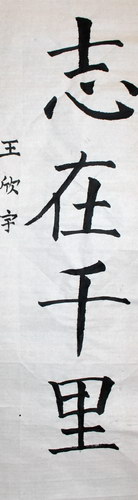 志在千里
王欣宇